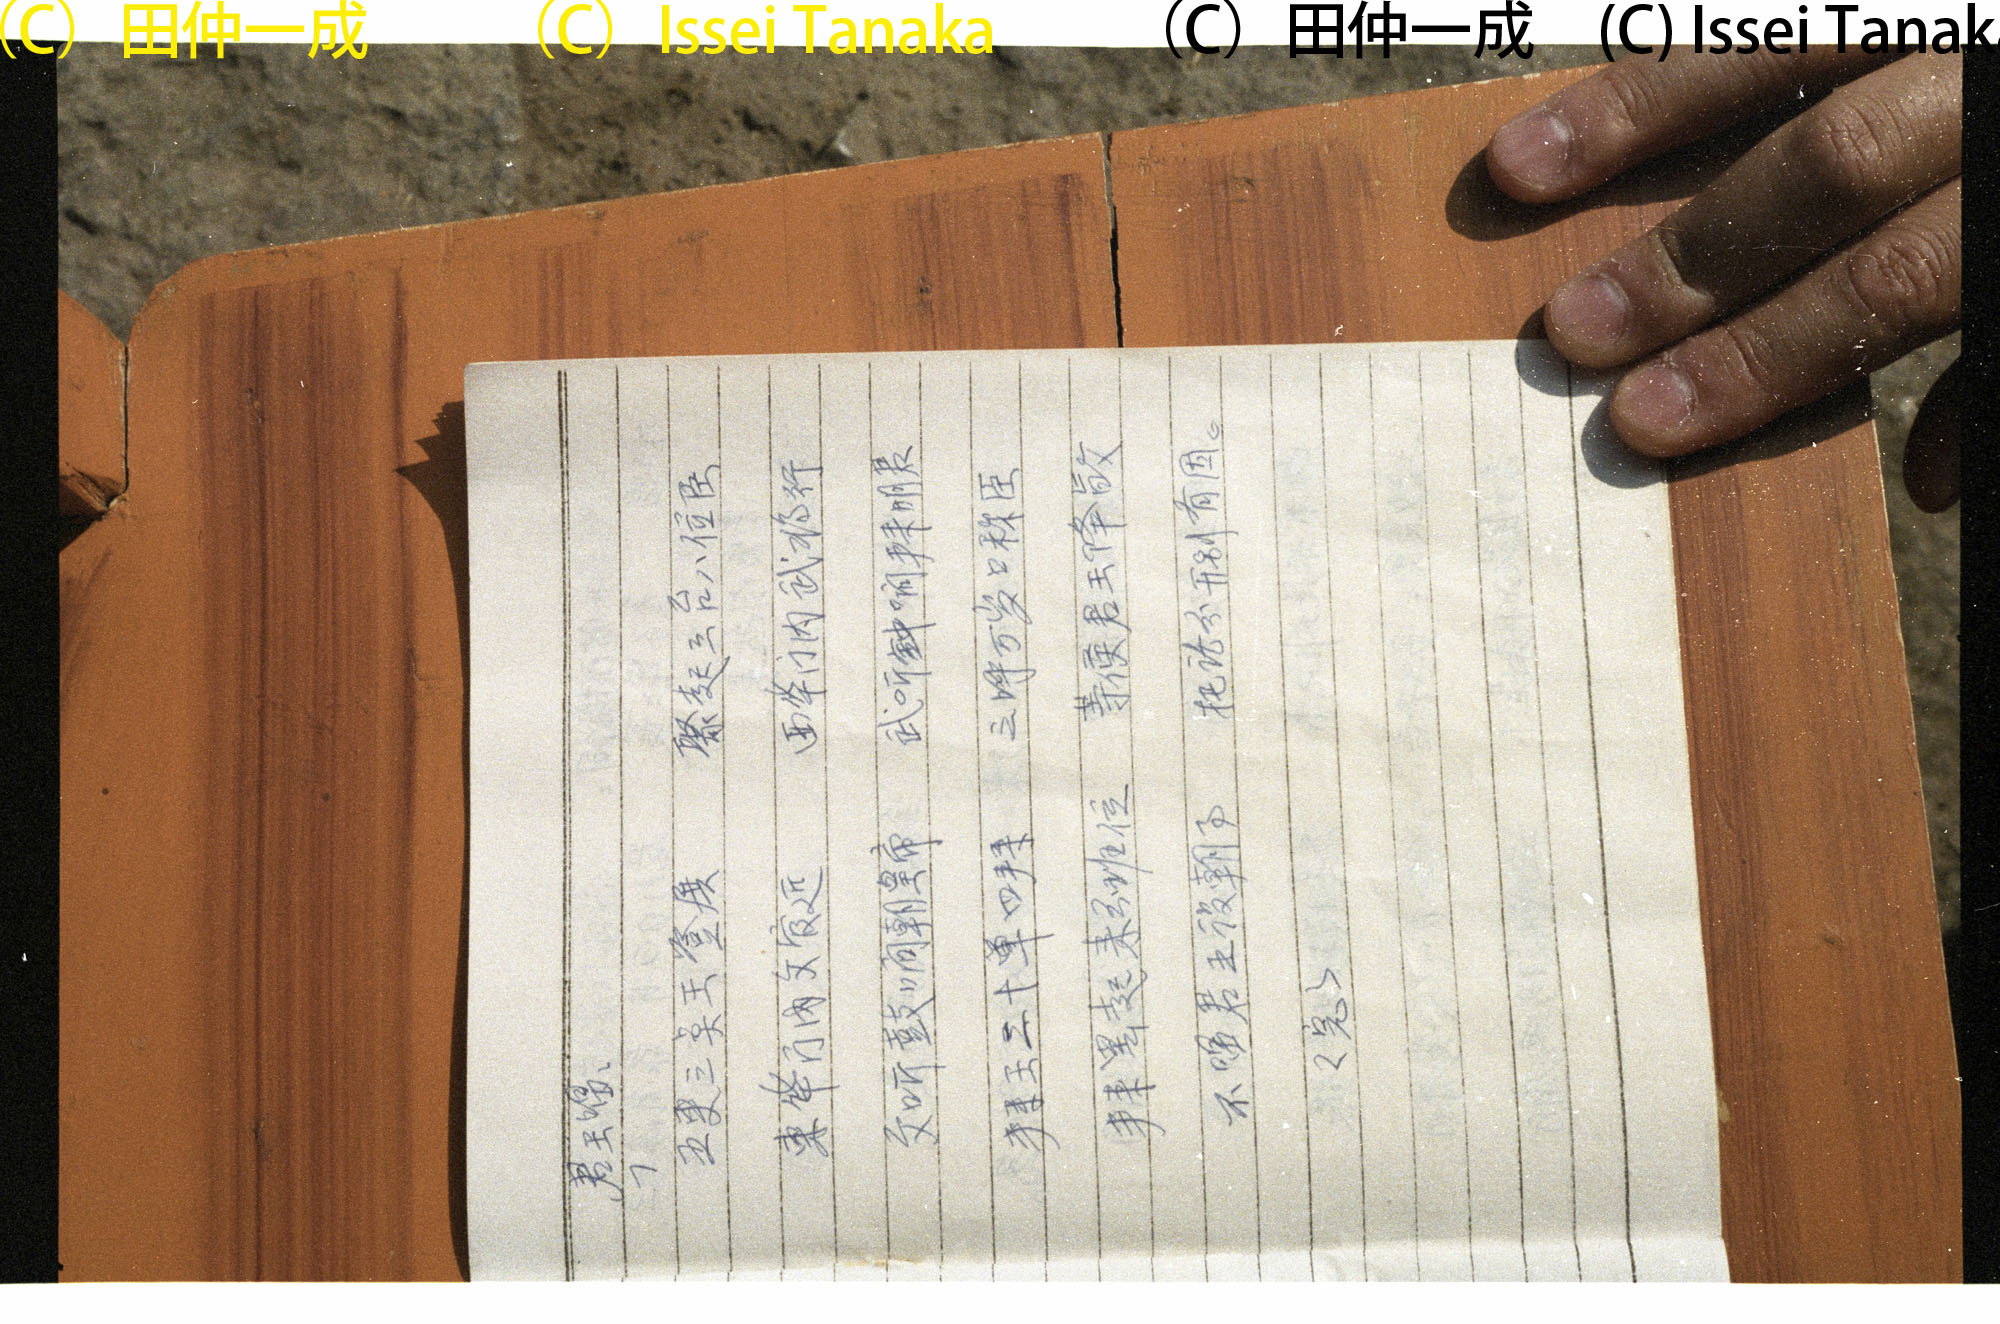 (C) 田仲一成 (C) Issei Tanaka (C) 田仲一成 (C) Issei Tana
君王唱、
五更三点王登展 聚起三台八位臣
东华门内文官近 西华门内武将行
文听鼓心间朝皇帝 武听钟响拜明君
拜王三十单四拜 三呼万岁口称臣
拜罢起来分班位 等候君王降旨文
不唱君王设朝事 托话分开别有因。
〈完〉